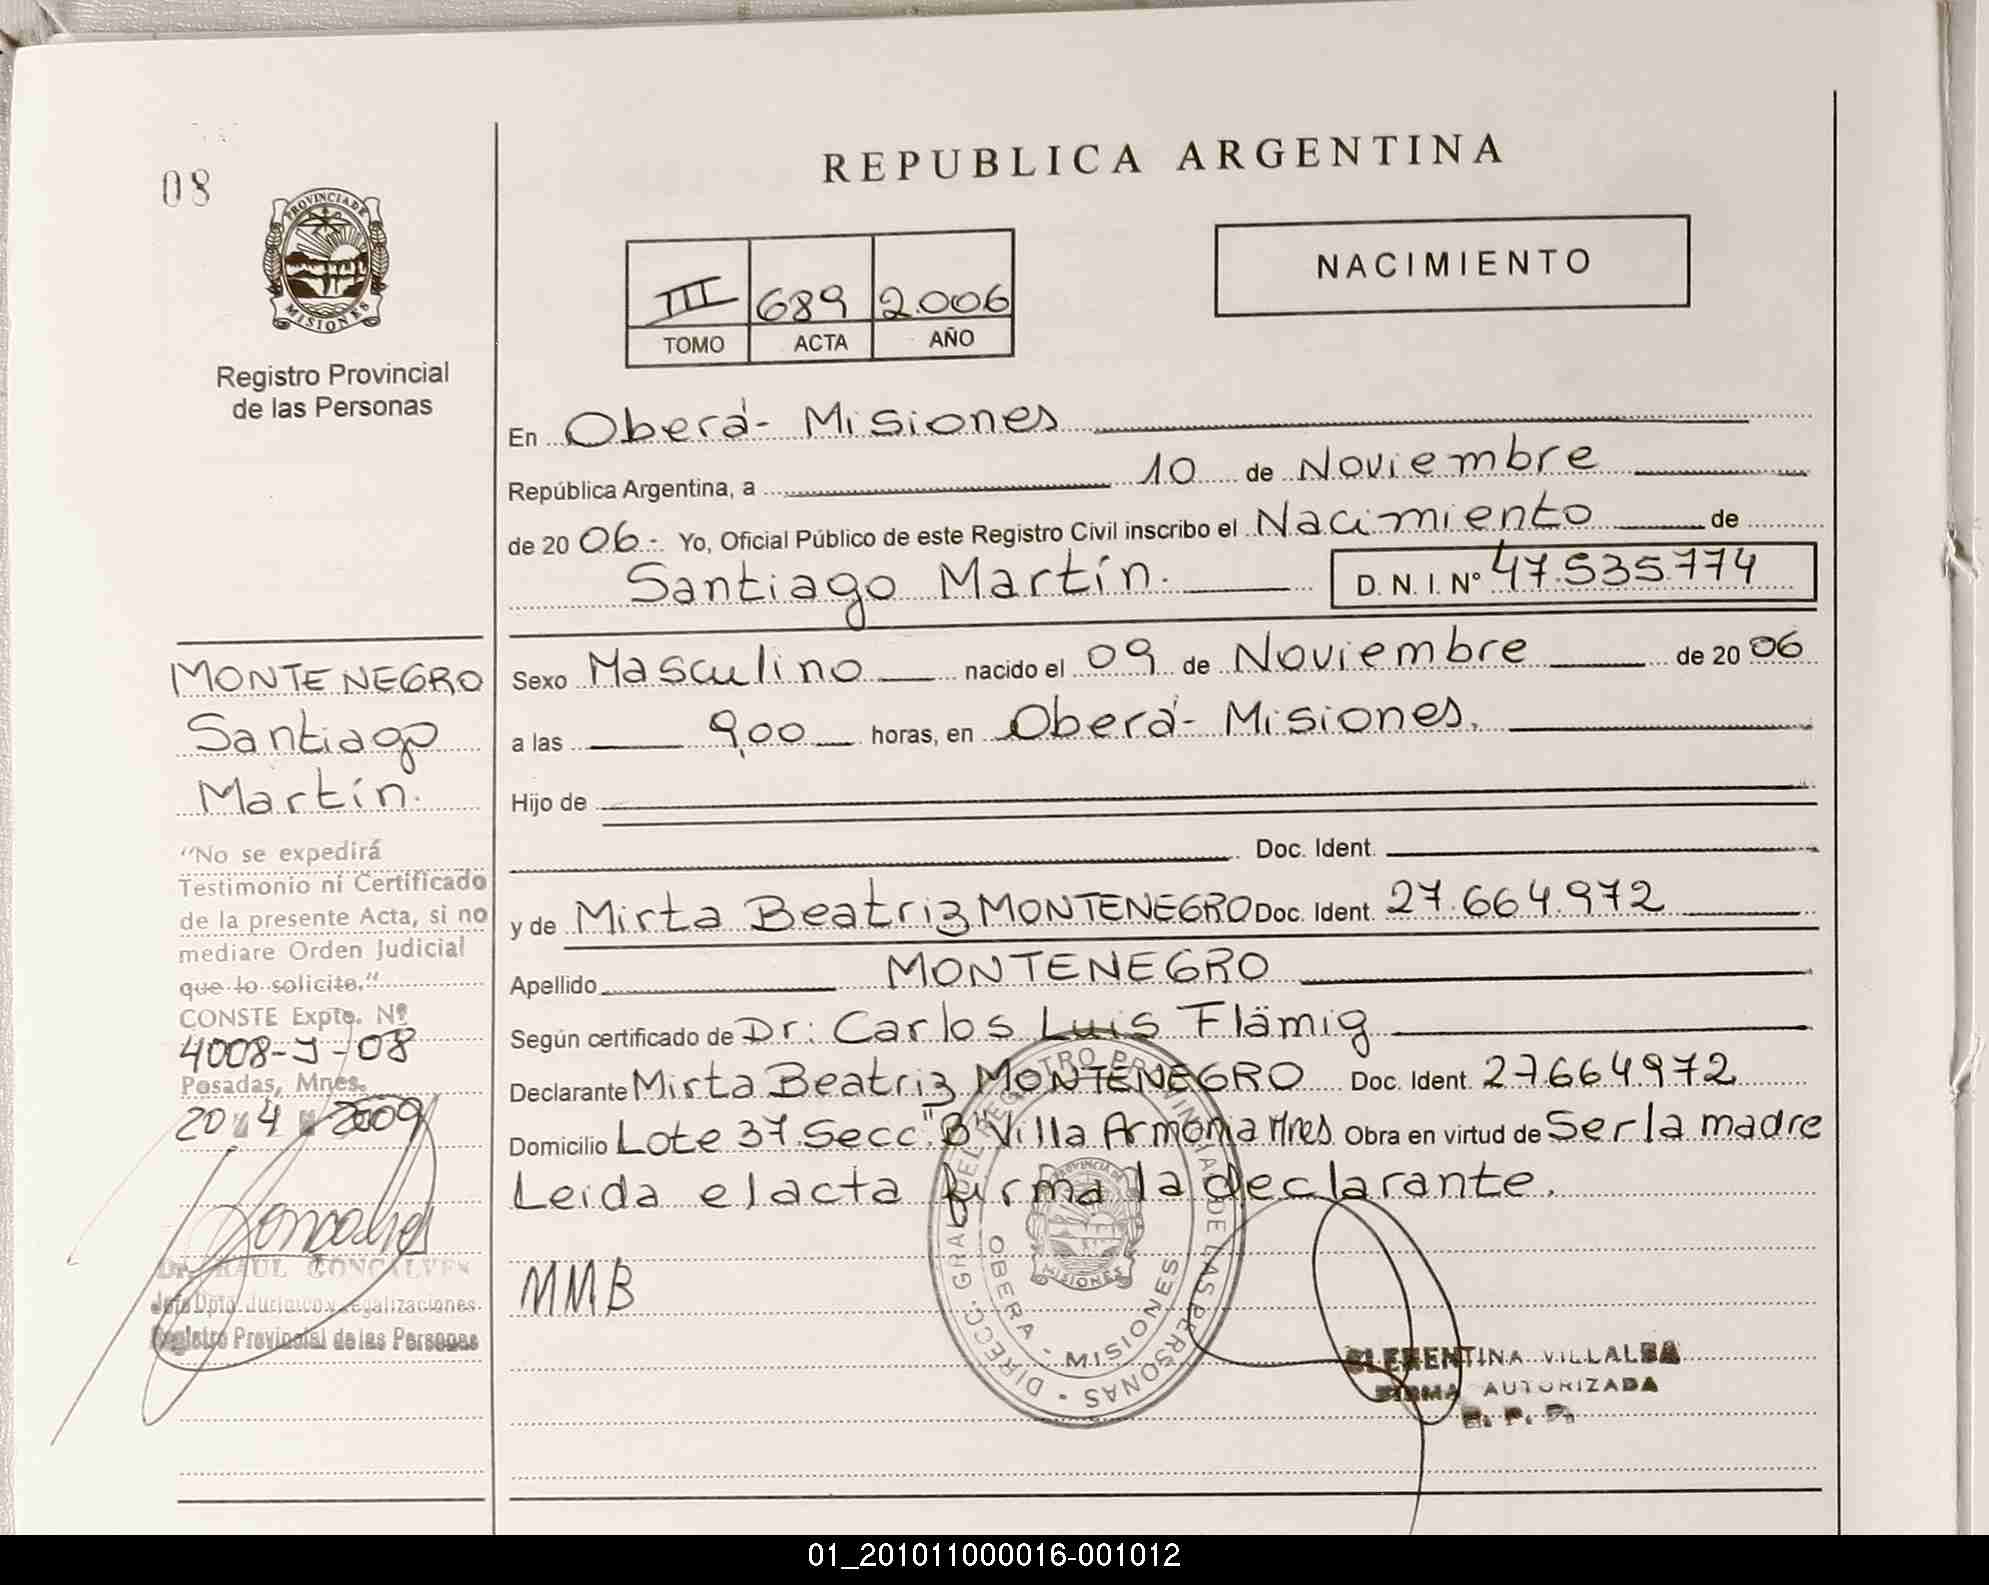 08
PROVINCIA DE
MISIONES
Registro Provincial
de las Personas
REPUBLICA ARGENTINA
III 689 2.006
TOMO ACTA AÑO
NACIMIENTO
En Oberá - Misiones
República Argentina, a 10 de Noviembre
de 20 06.- Yo, Oficial Público de este Registro Civil inscribo el Nacimiento de
Santiago Martín. D. N. I. Nº 47.535.774
MONTENEGRO
Santiago
Martín.
"No se expedirá
Testimonio ni Certificado
de la presente Acta, si no
mediare Orden Judicial
que lo solicite."
CONSTE Expte. Nº
4008-J-08
Posadas, Mnes.
20 4 2009
Dr. RAUL GONCALVES
Jefe Dpto. Jurídico y Legalizaciones
Registro Provincial de las Personas
Sexo Masculino nacido el 09 de Noviembre de 20 06
a las 9,00 horas, en Oberá - Misiones.
Hijo de
Doc. Ident.
y de Mirta Beatriz MONTENEGRO Doc. Ident. 27.664.972
Apellido MONTENEGRO
Según certificado de Dr: Carlos Luis Flämig
Declarante Mirta Beatriz MONTENEGRO Doc. Ident. 27.664.972
Domicilio Lote 37 Secc. "B" Villa Armonia Mnes Obra en virtud de Ser la madre
Leida el acta firma la declarante.
MMB
DIRECC. GRAL. DEL REGISTRO PROVINCIAL DE LAS PERSONAS
OBERA - MISIONES
PROVINCIA DE
MISIONES
CLEMENTINA VILLALBA
FIRMA AUTORIZADA
R. P. P.
01_201011000016-001012